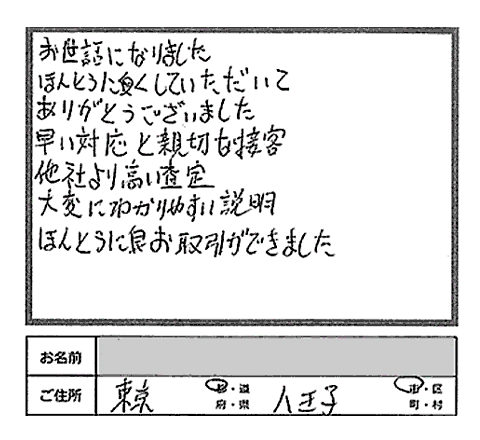 お世話になりました
ほんとうに良くしていただいて
ありがとうございました
早い対応と親切な接客
他社より高い査定
大変にわかりやすい説明
ほんとうに良お取引ができました
お名前
ご住所 東京 都・道府・県 八王子 市・区町・村